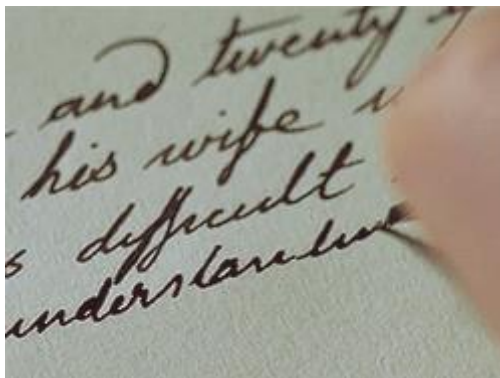 and twenty
his wife
s difficult
understan